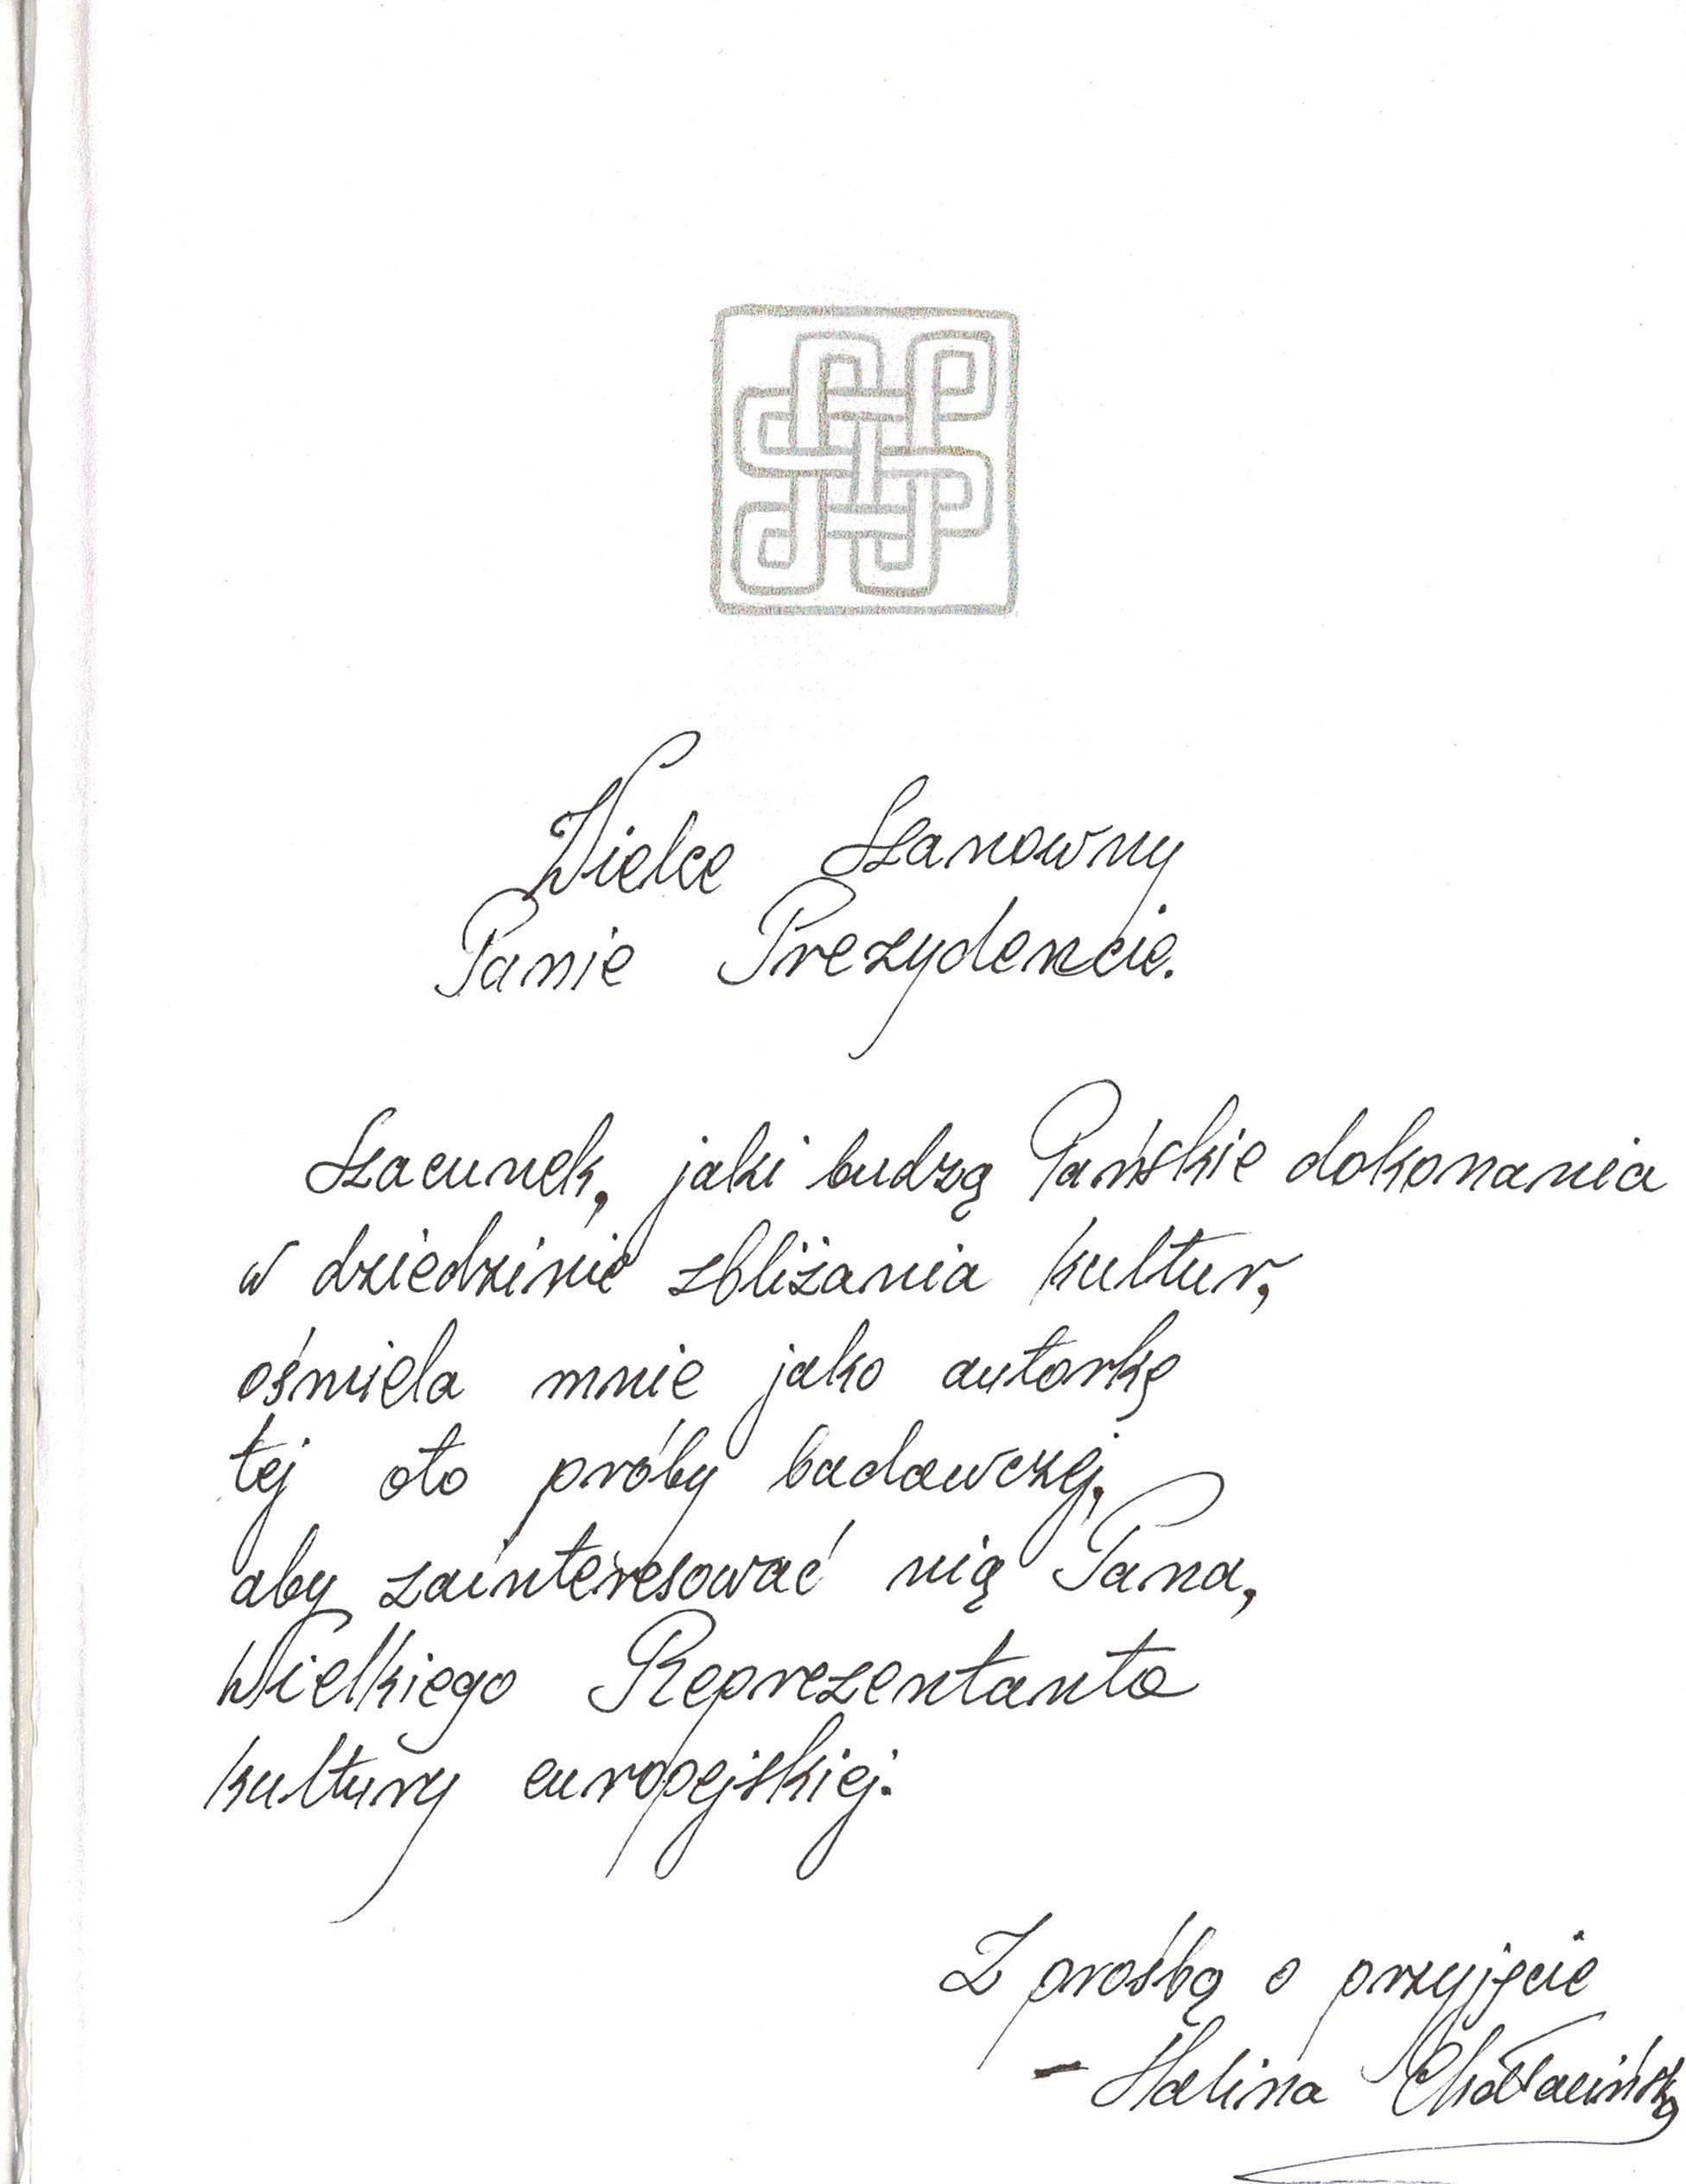 Wielce Szanowny
Panie Prezydencie.
Szacunek, jaki budzą Pańskie dokonania
w dziedzinie zbliżania kultur,
ośmiela mnie jako autorkę
tej oto próby badawczej,
aby zainteresować nią Pana,
Wielkiego Reprezentanta
kultury europejskiej.
Z prośbą o przyjęcie
- Halina Chałacińska